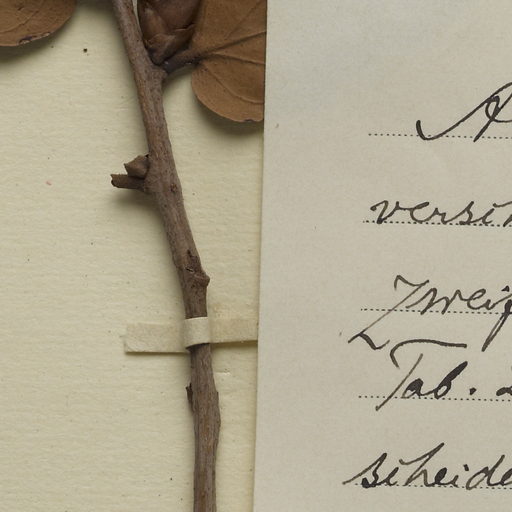 versi
Zwei
Tab.
scheide